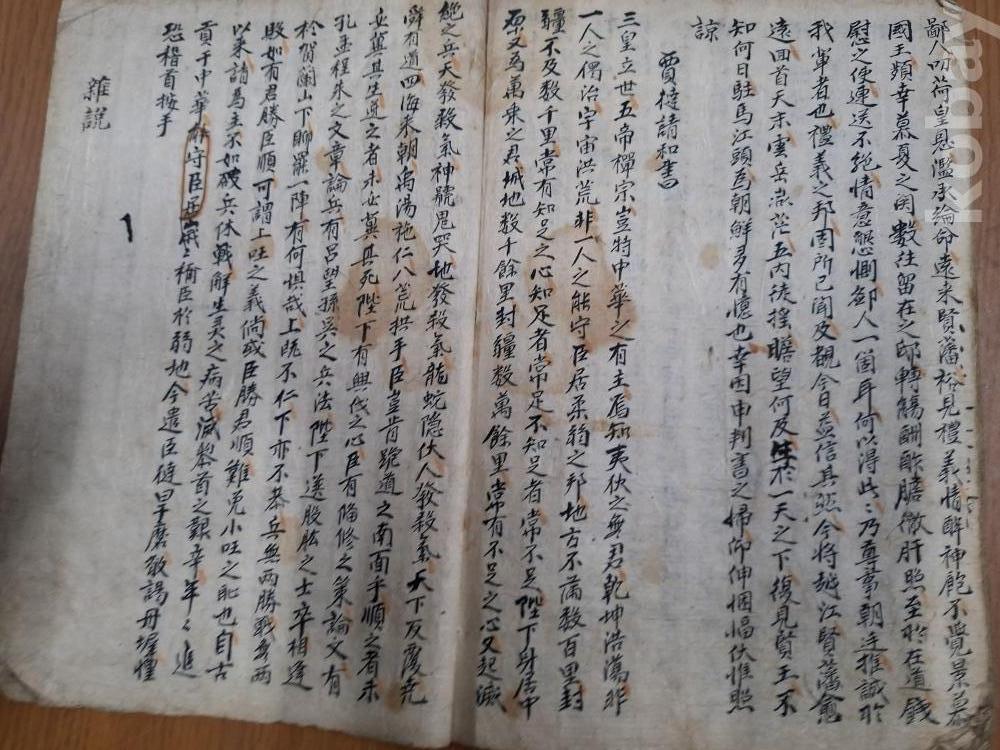 鄙人叨荷皇恩濫承綸命遠來賢藩紛見禮義情酣神飽不覺景慕
國王頻幸慕夏之関數往留在之邸轉觴酬酢膽徹肝照至於在道餞
慰之使連送不絕情意懇惻鄙人一箇耳何以得此〻乃尊事朝廷推誠於
我輩者也禮義之邦固所已聞及覩今日益信其然今將越江賢藩愈
遠回首天末雲兵茫五內徒搖瞻望何及於一天之下復見賢王不
知何日駐馬江頭爲朝鮮多有憶也幸因申判書之歸仰伸悃愊伏惟照
諒
賈㺚請和書
三皇立世五帝禪宗豈特中華之有主焉知夷狄之無君乾坤浩蕩非
一人之獨治宇宙洪荒非一人之能守臣居柔弱之邦地方不滿數百里封
疆不及數千里常有知足之心知足者常足不知足者常不足陛下身居中
原又爲萬乘之君城地數千餘里封疆數萬餘里常有不足之心又起滅
絕之兵天發殺氣神號鬼哭地發殺氣龍蛇隱伏人發殺氣天下反覆堯
舜有道四海來朝禹湯施仁八荒拱手臣豈肯跪道之南面乎順之者未
必冀其生逆之者未必冀其死陛下有興伐之心臣有隄修之策論文有
孔孟程朱之文章論兵有呂望孫吳之兵法陛下選股肱之士卒相逢
於賀蘭山下聊羅一陣有何惧哉上旣不仁下亦不恭兵無兩勝戰無兩
敗如有君勝臣順可謂上旺之義倘或臣勝君順難免小旺之恥也自古
以來請爲主不如破兵休戰解生灵之病苦減黎首之艱辛年〻進
貢于中華守臣〻稱臣於弱地今遣臣㺚早磨敬謁丹墀惶
恐稽首按手
雜説
kobay